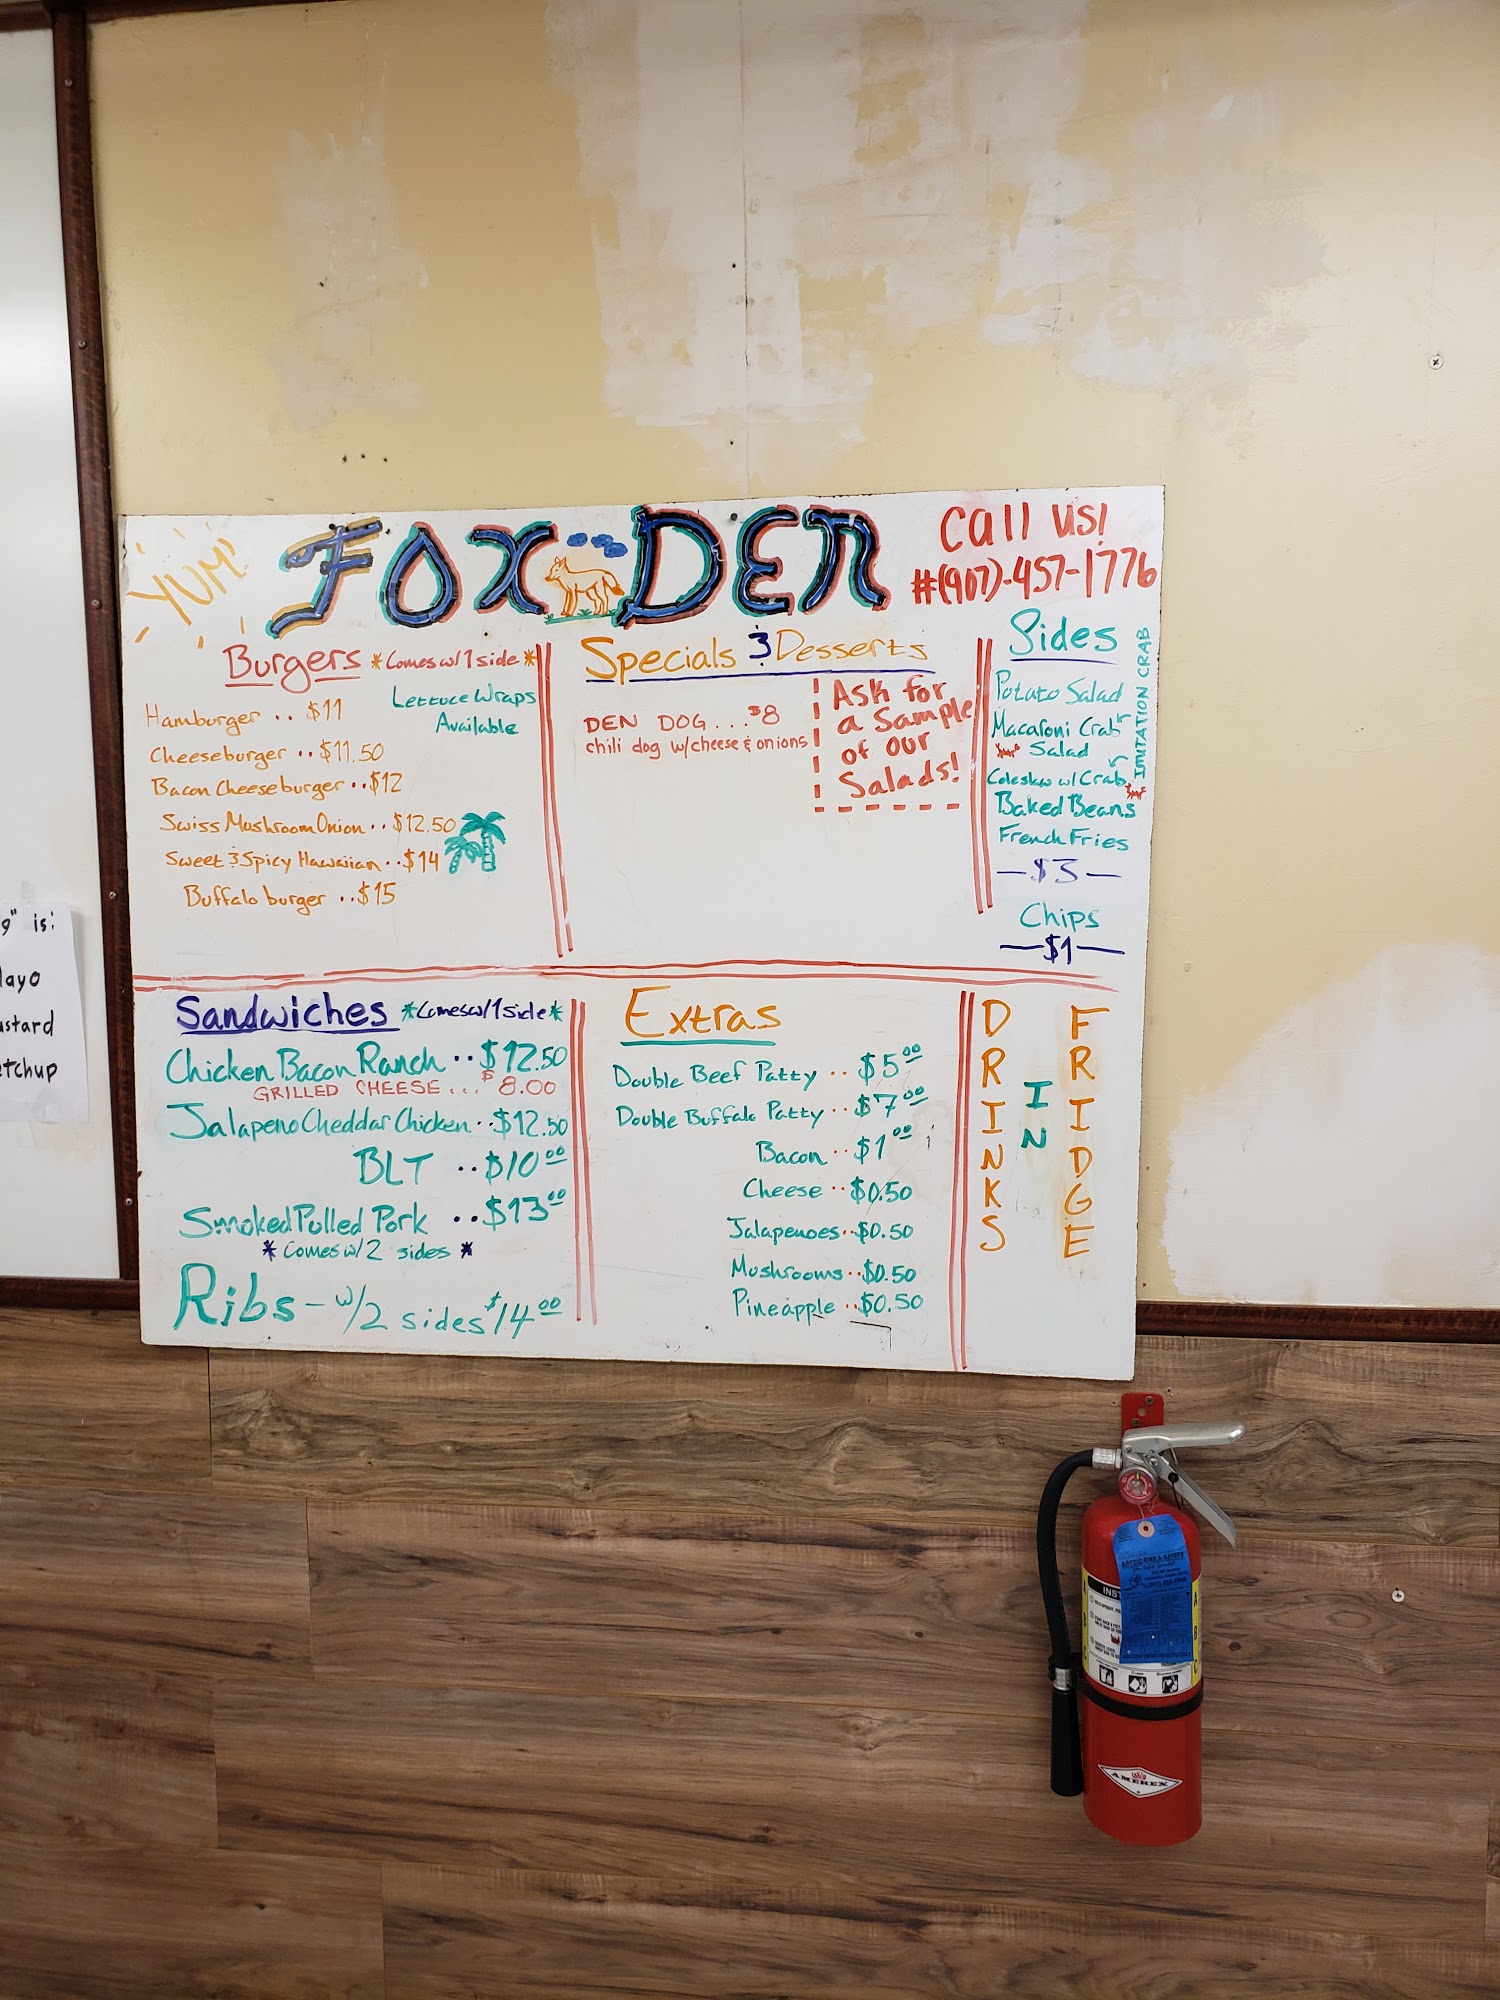 YUM!
FOX DEN
Call us!
#(907)-457-1776
Burgers *Comes w/ 1 side*
Lettuce Wraps
Available
Hamburger .. $11
Cheeseburger .. $11.50
Bacon Cheeseburger .. $12
Swiss Mushroom Onion .. $12.50
Sweet & Spicy Hawaiian .. $14
Buffalo burger .. $15
Specials & Desserts
DEN DOG ... $8
chili dog w/cheese & onions
Ask for
a Sample
of our
Salads!
Sides
Potato Salad
Macaroni Crab
Salad
Coleslaw w/ Crab
IMITATION CRAB
Baked Beans
French Fries
— $3 —
Chips
— $1 —
Sandwiches *Comes w/ 1 side*
Chicken Bacon Ranch .. $12.50
GRILLED CHEESE ... $8.00
Jalapeno Cheddar Chicken .. $12.50
BLT .. $10.00
Smoked Pulled Pork .. $13.00
* Comes w/ 2 sides *
Ribs - w/2 sides $14.00
Extras
Double Beef Patty .. $5.00
Double Buffalo Patty .. $7.00
Bacon .. $1.00
Cheese .. $0.50
Jalapenoes .. $0.50
Mushrooms .. $0.50
Pineapple .. $0.50
DRINKS
IN
FRIDGE
9" is:
ayo
ustard
etchup
ARCTIC FIRE & SAFETY
INST
A
B
C
AMEREX